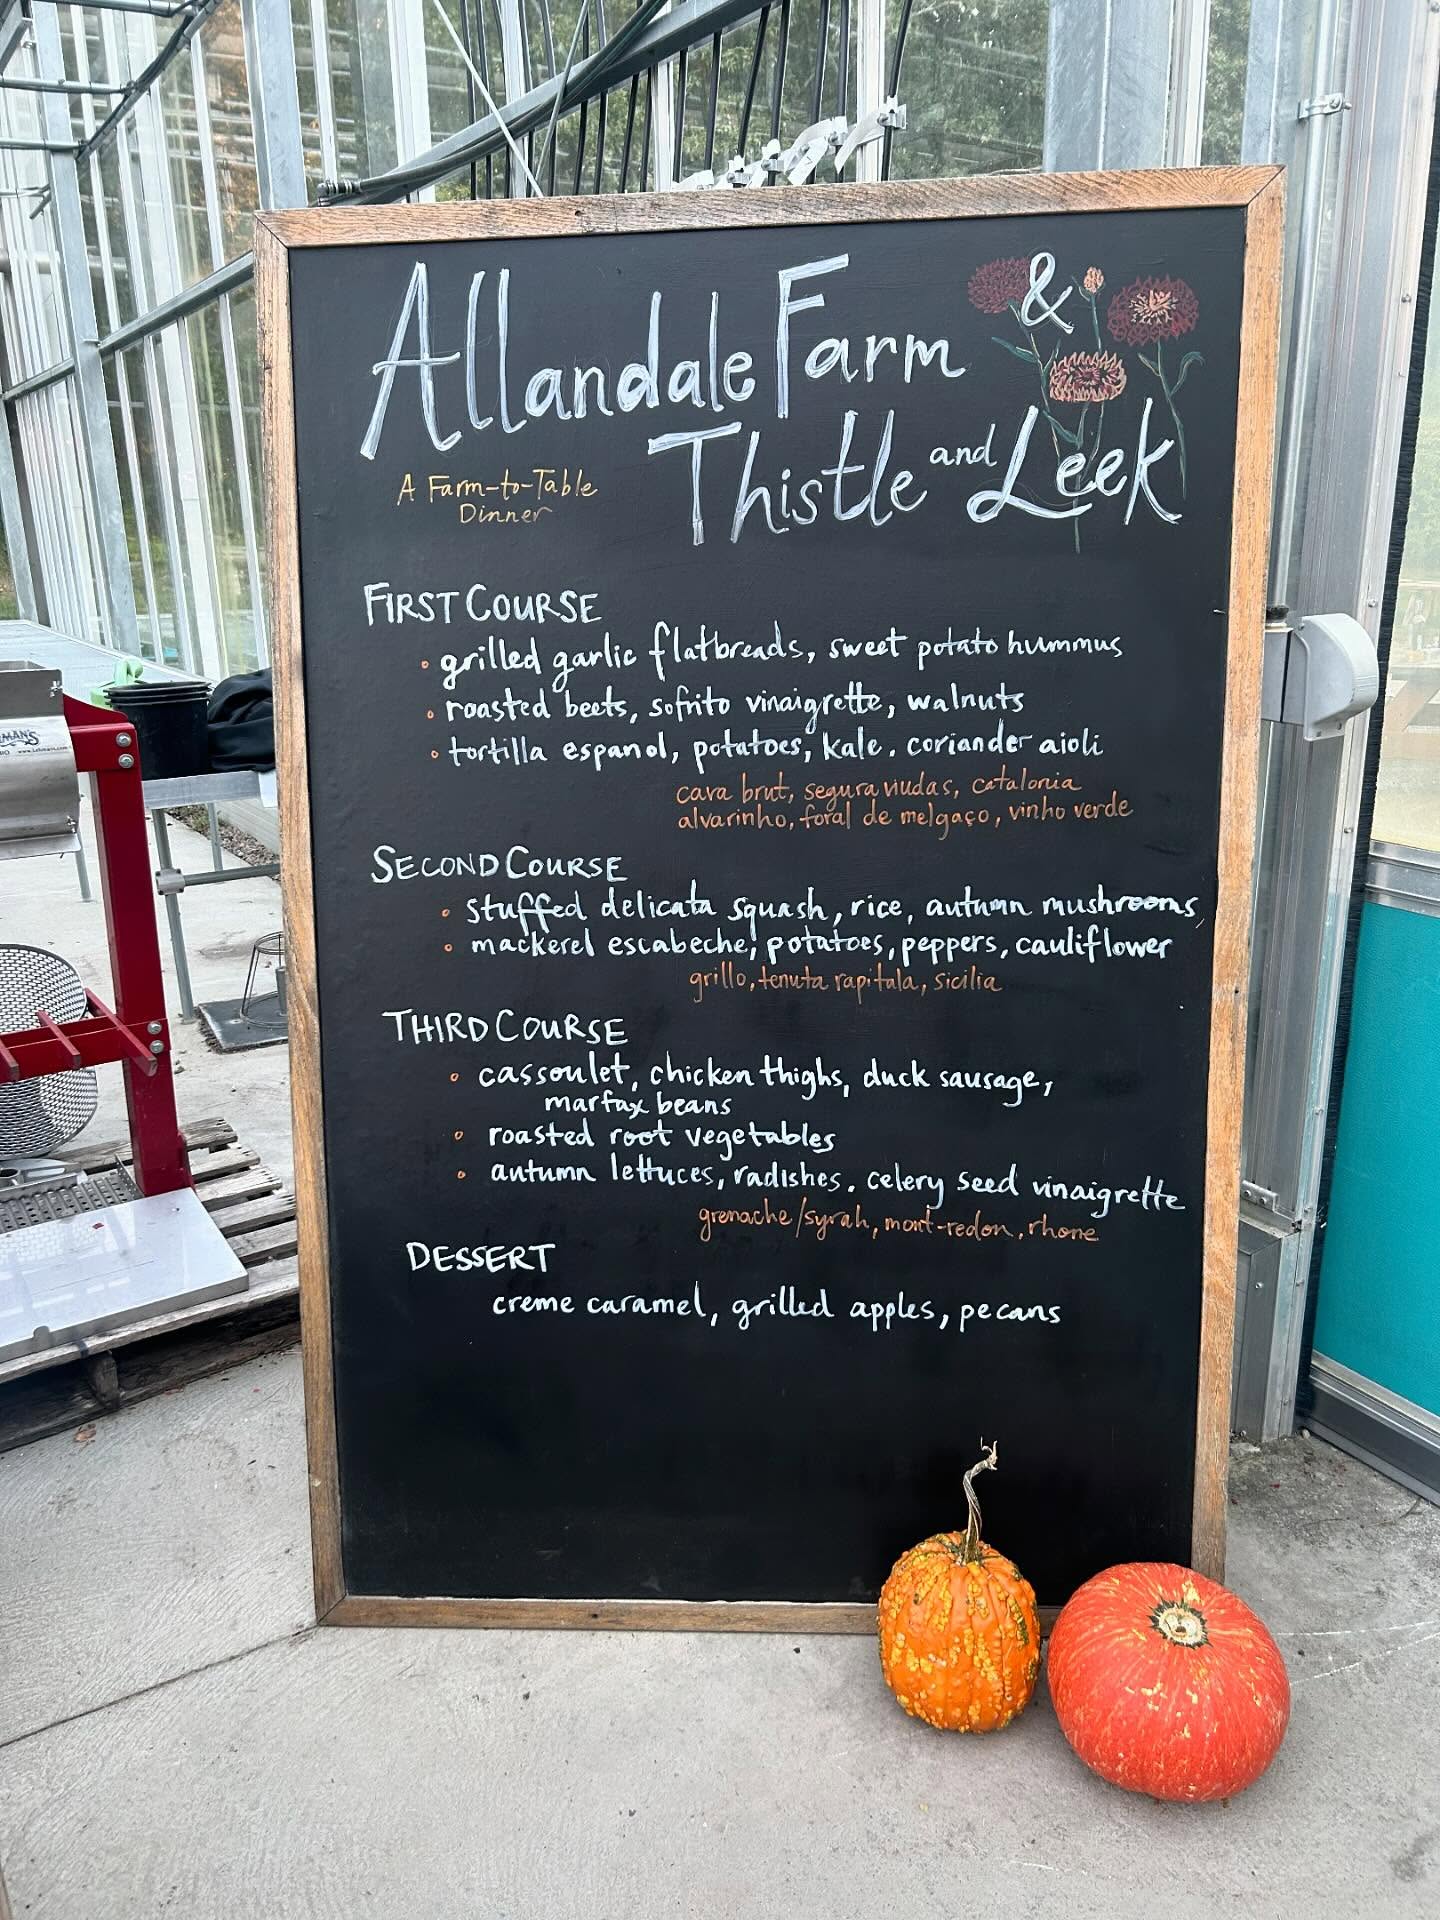 Allandale Farm &
Thistle and Leek
A Farm-to-Table
Dinner
FIRST COURSE
• grilled garlic flatbreads, sweet potato hummus
• roasted beets, sofrito vinaigrette, walnuts
• tortilla espanol, potatoes, kale, coriander aioli
cava brut, segura viudas, catalonia
alvarinho, foral de melgaço, vinho verde
SECOND COURSE
• stuffed delicata squash, rice, autumn mushrooms,
• mackerel escabeche, potatoes, peppers, cauliflower
grillo, tenuta rapitala, sicilia
THIRD COURSE
• cassoulet, chicken thighs, duck sausage,
marfax beans
• roasted root vegetables
• autumn lettuces, radishes, celery seed vinaigrette
grenache/syrah, mont-redon, rhone
DESSERT
creme caramel, grilled apples, pecans